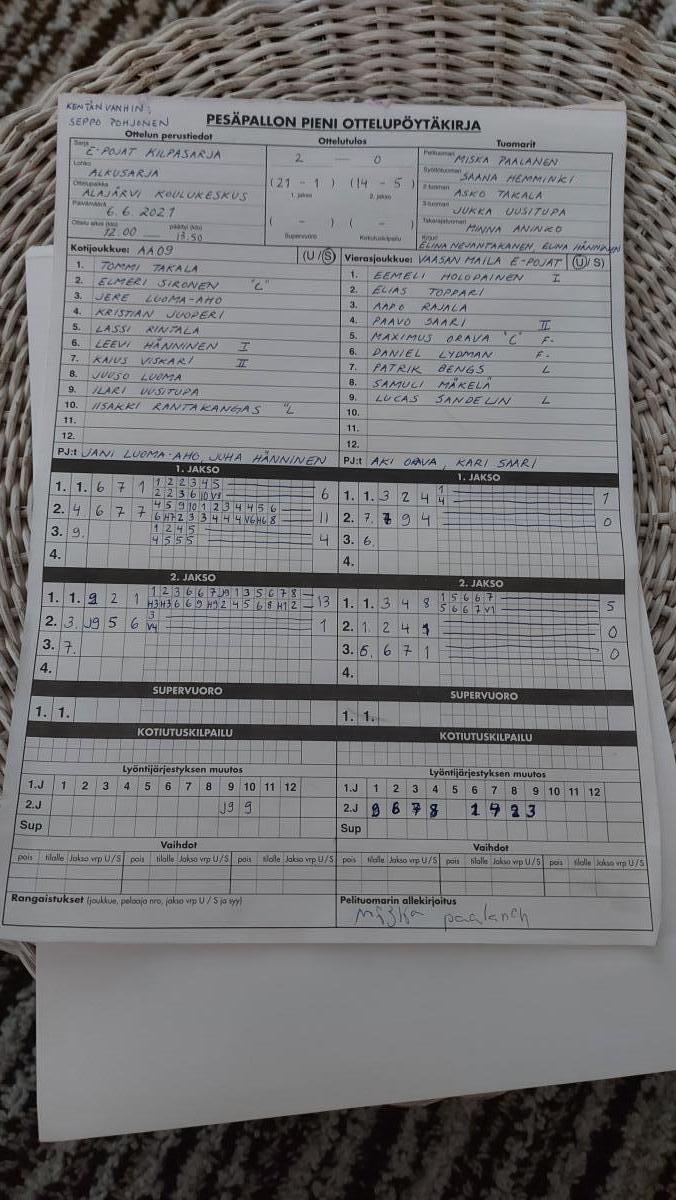 KENTÄN VANHIN:
SEPPO POHJONEN
PESÄPALLON PIENI OTTELUPÖYTÄKIRJA
Ottelun perustiedot
Sarja E-POJAT KILPASARJA
Lohko ALKUSARJA
Ottelupaikka ALAJÄRVI KOULUKESKUS
Päivämäärä 6.6.2021
Ottelu alkoi (klo) päättyi (klo)
12.00 — 13.50
Ottelutulos
2 — 0
(21 - 1) (14 - 5)
1. jakso 2. jakso
( - ) ( - )
Supervuoro Kotiutuskilpailu
Tuomarit
Pelituomari MISKA PAALANEN
Syöttötuomari SAANA HEMMINKI
2-tuomari ASKO TAKALA
3-tuomari JUKKA UUSITUPA
Takarajatuomari MINNA ANINKO
Kirjuri
Kotijoukkue: AA09 (U/S)
1. TOMMI TAKALA
2. ELMERI SIRONEN "L"
3. JERE LUOMA-AHO
4. KRISTIAN JUOPERI
5. LASSI RINTALA
6. LEEVI HÄNNINEN I
7. KAIUS VISKARI II
8. JUUSO LUOMA
9. ILARI UUSITUPA
10. IISAKKI RANTAKANGAS "L
11.
12.
PJ:t JANI LUOMA-AHO, JUHA HÄNNINEN
Vierasjoukkue: VAASAN MAILA E-POJAT (U/S)
1. EEMELI HOLOPAINEN I
2. ELIAS TOPPARI
3. AAPO RAJALA
4. PAAVO SAARI II
5. MAXIMUS ORAVA "C" F-
6. DANIEL LYDMAN F-
7. PATRIK BENGS L
8. SAMULI MÄKELÄ
9. LUCAS SANDELIN L
10.
11.
12.
PJ:t AKI ORAVA, KARI SAARI
1. JAKSO
1. 1. 6 7 1 1 2 2 3 4 5 6
2 2 3 6 10 V9
2. 4 6 7 7 4 5 9 10 1 2 3 4 4 5 6 11
6 H7 2 3 3 4 4 4 V6 H6 8
3. 9. 1 2 4 5 4
4 5 5 5
4.
1. JAKSO
1. 1. 3 2 4 1 1
4
2. 7. 7 9 4 0
3. 6.
4.
2. JAKSO
1. 1. 9 2 1 1 2 3 6 6 7 J9 1 3 5 6 7 8 13
H3 H3 6 6 9 H9 2 4 5 6 8 H1 2
2. 3. J9 5 6 3 1
V4
3. 7.
4.
2. JAKSO
1. 1. 3 4 8 1 5 6 6 7 5
5 6 6 7 V1
2. 1. 2 4 1 0
3. 5. 6 7 1 0
4.
SUPERVUORO
1. 1.
SUPERVUORO
1. 1.
KOTIUTUSKILPAILU
KOTIUTUSKILPAILU
Lyöntijärjestyksen muutos
1.J 1 2 3 4 5 6 7 8 9 10 11 12
2.J J9 9
Sup
Lyöntijärjestyksen muutos
1.J 1 2 3 4 5 6 7 8 9 10 11 12
2.J
Sup
Vaihdot
pois tilalle Jakso vrp U/S pois tilalle Jakso vrp U/S pois tilalle Jakso vrp U/S
Vaihdot
pois tilalle Jakso vrp U/S pois tilalle Jakso vrp U/S pois tilalle Jakso vrp U/S
Rangaistukset (joukkue, pelaaja nro, jakso vrp U / S ja syy)
Pelituomarin allekirjoitus